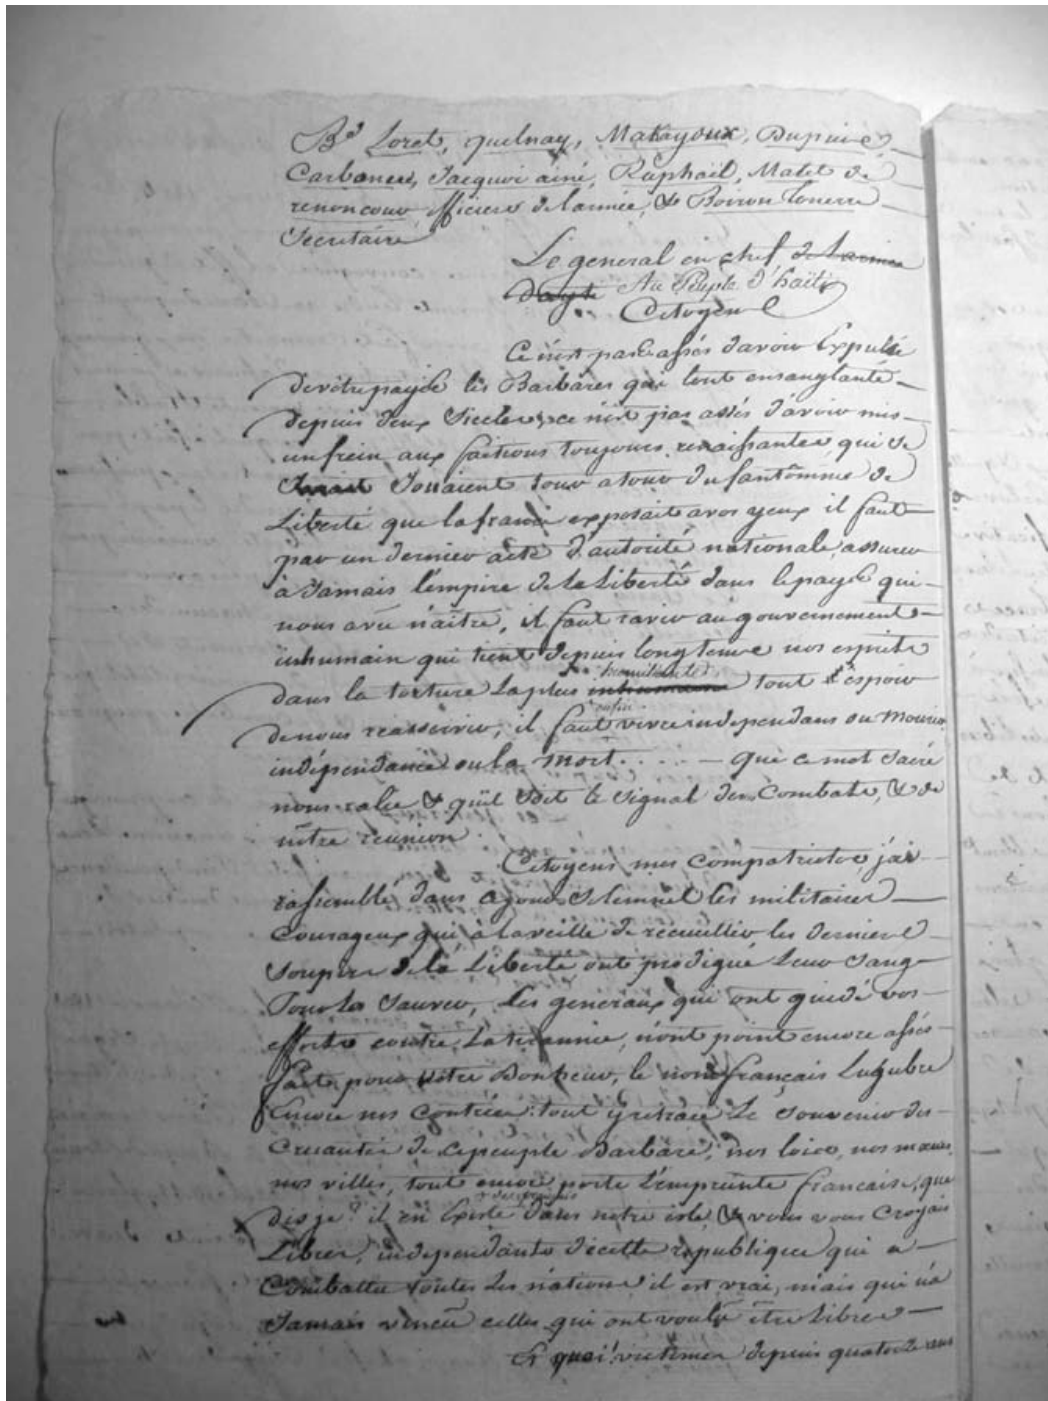 Bd Loret, quelnay, Makajoux, Dupuis
Carbonne, Jacquoi ainé, Raphaël, Malet &
renoncour officiers de l'armée, & Boiron Tonerre
Secretaire
Le general en chef de L'armée
Au Peuple d'haïti
Citoyens
Ce n'est pas assés d'avoir Expulsé
de vôtre payis les Barbares qui l'ont ensanglanté
depuis deux Siecles, ce n'est pas assés d'avoir mis
un frein aux factions toujours renaissantes qui se
Jouaient tour a tour du fantômme de
Liberté que la france exposait a vos yeux il faut
par un dernier acte d'autorité nationale, assurer
à Jamais l'empire de la Liberté dans le payis qui
nous a vû naître, il faut ravir au gouvernement
inhumain qui tient depuis longtems nos esprits
dans la torture la plus humiliante tout espoir
de nous reasservir, il faut enfin vivre independans ou mourir
indépendance ou la mort..... que ce mot sacré
nous ralie & qu'il soit le signal des Combats, & de
nôtre reunion.
Citoyens mes compatriotes, j'ai
rassemblé dans ce jour solemnel les militaires
Courageux qui à la veille de recueillir les derniers
soupirs de la Liberté ont prodigué Leur Sang
Pour la Sauver, les géneraux qui ont guidé vos
efforts contre La tirannie, n'ont point encore assés
fait pour vôtre Bonheur, le nom français Lugubre
Encore nos contrées: tout y retrace Le Souvenir des
Cruautés de ce peuple Barbare; nos loix, nos mœurs,
nos villes, tout encore porte l'empreinte française, que
dis je? il en Existe des français dans notre isle & vous vous Croyais
Libres, independants de cette republique qui a
Combattu toutes Les nations il est vrai, mais qui n'a
Jamais vincu celles qui ont voulu être Libres
Et quoi! victimes depuis quatorze ans